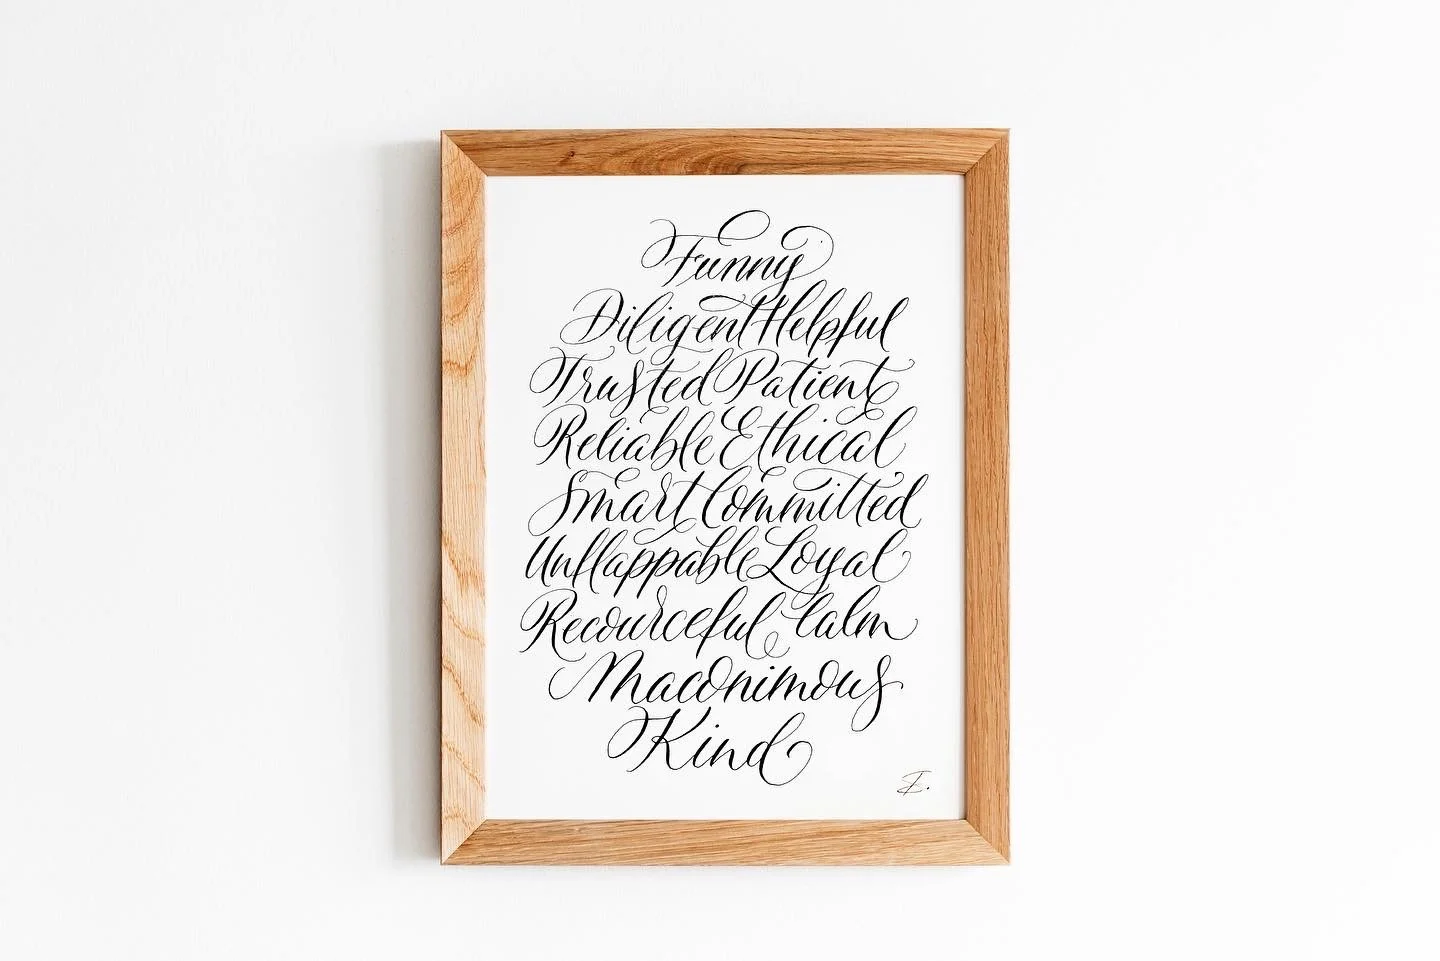 Funny
Diligent Helpful
Trusted Patient
Reliable Ethical
Smart Committed
Unflappable Loyal
Recourceful Calm
Maconimous
Kind
E.